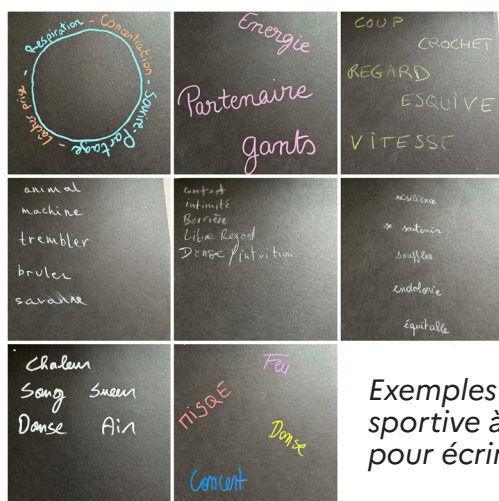 Respiration - Concentration - Sourire - Partage - Lâcher prise -
Energie
Partenaire
gants
COUP
CROCHET
REGARD
ESQUIVE
VITESSE
animal
machine
trembler
bruler
savanne
contact
intimité
Barrière
Libre Regard
Danse / intuition
résilience
se soutenir
souffler
endolorie
équitable
Chaleur
Sang Sueur
Danse Air
Feu
Danse
Concert
Exemples
sportive à
pour écrir